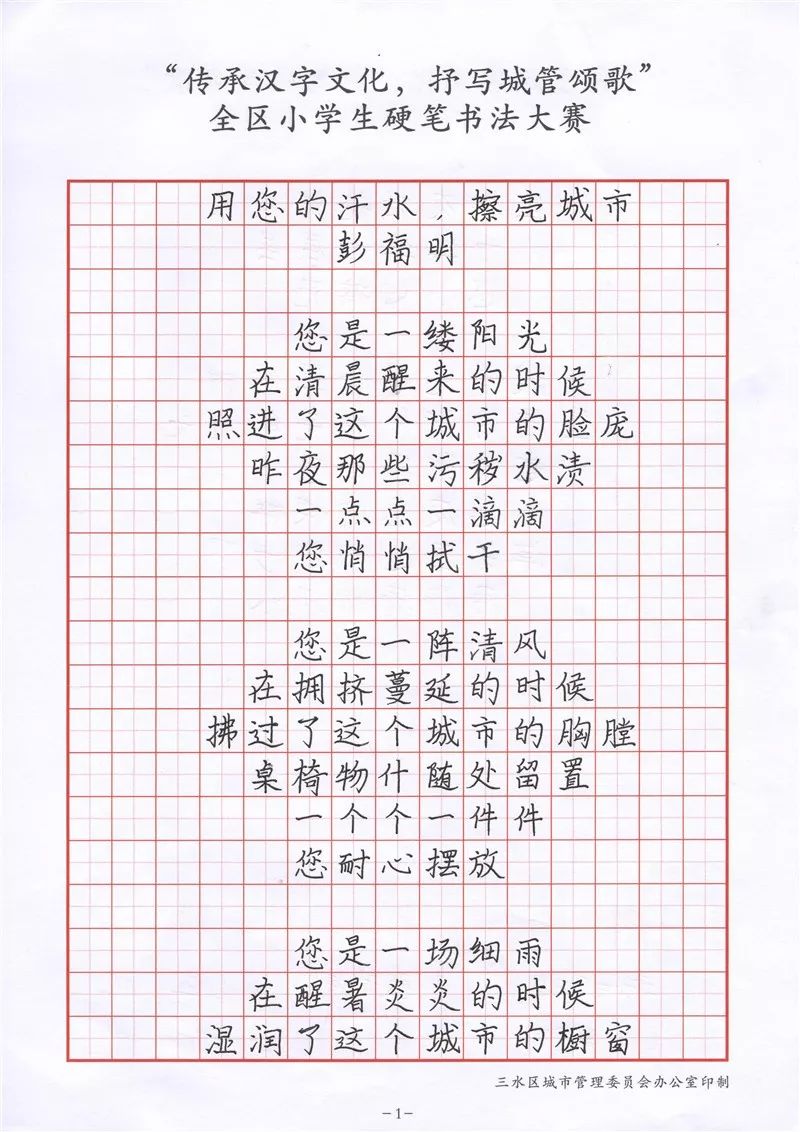 “传承汉字文化，抒写城管颂歌”
全区小学生硬笔书法大赛
用您的汗水，擦亮城市
彭福明
您是一缕阳光
在清晨醒来的时候
照进了这个城市的脸庞
昨夜那些污秽水渍
一点点一滴滴
您悄悄拭干
您是一阵清风
在拥挤蔓延的时候
拂过了这个城市的胸膛
桌椅物什随处留置
一个个一件件
您耐心摆放
您是一场细雨
在醒暑炎炎的时候
湿润了这个城市的橱窗
三水区城市管理委员会办公室印制
-1-